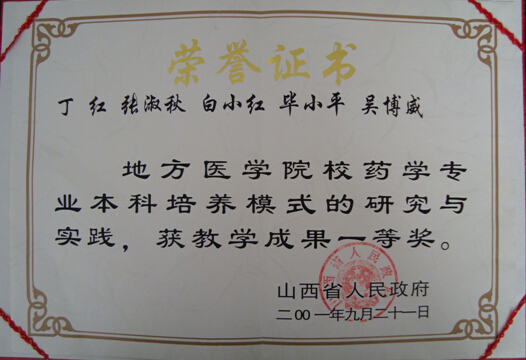 荣誉证书
丁 红 张淑秋 白小红 毕小平 吴博威
地方医学院校药学专
业本科培养模式的研究与
实践，获教学成果一等奖。
山西省人民政府
山西省人民政府
二00一年九月二十一日